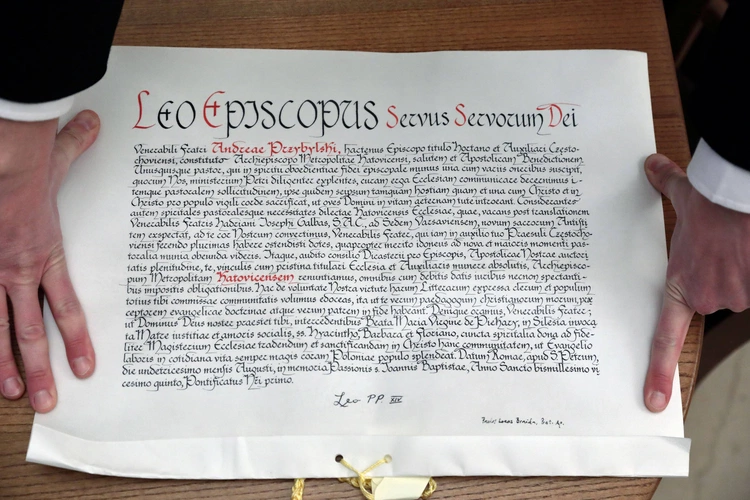 Leo Episcopus Servus Servorum Dei
Venerabili Fratri Andreae Przybylski, hactenus Episcopo titulo Hortano et Auxiliari Często-
choviensi, constituto Archiepiscopo Metropolitae Katovicensi, salutem et Apostolicam Benedictionem.
Unusquisque pastor, qui in spiritu oboedientiae fidei episcopale munus una cum vacuis oneribus suscipit,
quocum Nos, ministerium Petri diligenter explentes, curam erga Ecclesiam communicare decrevimus i-
temque pastoralem sollicitudinem, ipse quidem seipsum tamquam hostiam quam et una cum Christo et in
Christo pro populo vigili corde sacrificat, ut oves Domini in vitam aeternam tute introeant. Considerantes
autem spiritales pastoralesque necessitates dilectae Katovicensis Ecclesiae, quae, vacans post translationem
Venerabilis Fratris Hadriani Iosephi Galbas, S.A.C., ad Sedem Varsaviensem, novum sacrorum Antisti-
tem exspectat, ad te ecce Nostrum convertimus, Venerabilis Frater, qui iam in auxilio tuo Praesuli Częstocho-
viensi ferendo plurimas habere ostendisti dotes, quapropter inerito idoneus ad nova et maioris momenti pas-
toralia munia obeunda videris. Itaque, audito consilio Dicasterii pro Episcopis, Apostolicae Nostrae auctori-
tatis plenitudine, te, vinculis cum pristina titulari Ecclesia et Auxiliaris munere absolutis, Archiepisco-
pum Metropolitam Katovicensem renuntiamus, omnibus cum debitis datis iuribus necnon spectanti-
bus impositis obligationibus. Hac de voluntate Nostra virtute harum Litterarum expressa clerum et populum
totius tibi commissae communitatis volumus edoceas, ita ut te verum paedagogum christianorum morum, prae-
ceptorem evangelicae doctrinae atque verum patrem in fide habeant. Denique oramus, Venerabilis Frater,
ut Dominus Deus noster praestet tibi, intercedentibus Beata Maria Virgine de Piekary, in Silesia invoca-
ta Matre iustitiae et amoris socialis, ss. Hyacintho, Barbara et Floriano, cuncta spiritalia dona ad fide-
liter Magisterium Ecclesiae tradendum et sanctificandam in Christo hanc communitatem, ut Evangelio
laboris in cotidiana vita semper magis coram Poloniae populo splendeat. Datum Romae, apud S. Petrum,
die undetricesimo mensis Augusti, in memoria Passionis s. Ioannis Baptistae, Anno Sancto bismillesimo vi-
cesimo quinto, Pontificatus Nei primo.
Leo PP. XIV